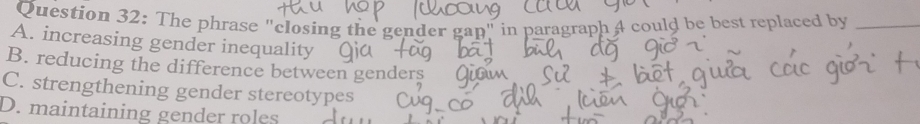 thu hẹp khoảng cách giới
Question 32: The phrase "closing the gender gap" in paragraph 4 could be best replaced by
A. increasing gender inequality gia tăg bất bìh dg giới
B. reducing the difference between genders giảm sự ≠ biệt giữa các giới t
C. strengthening gender stereotypes củg cố địh kiến giới
D. maintaining gender roles